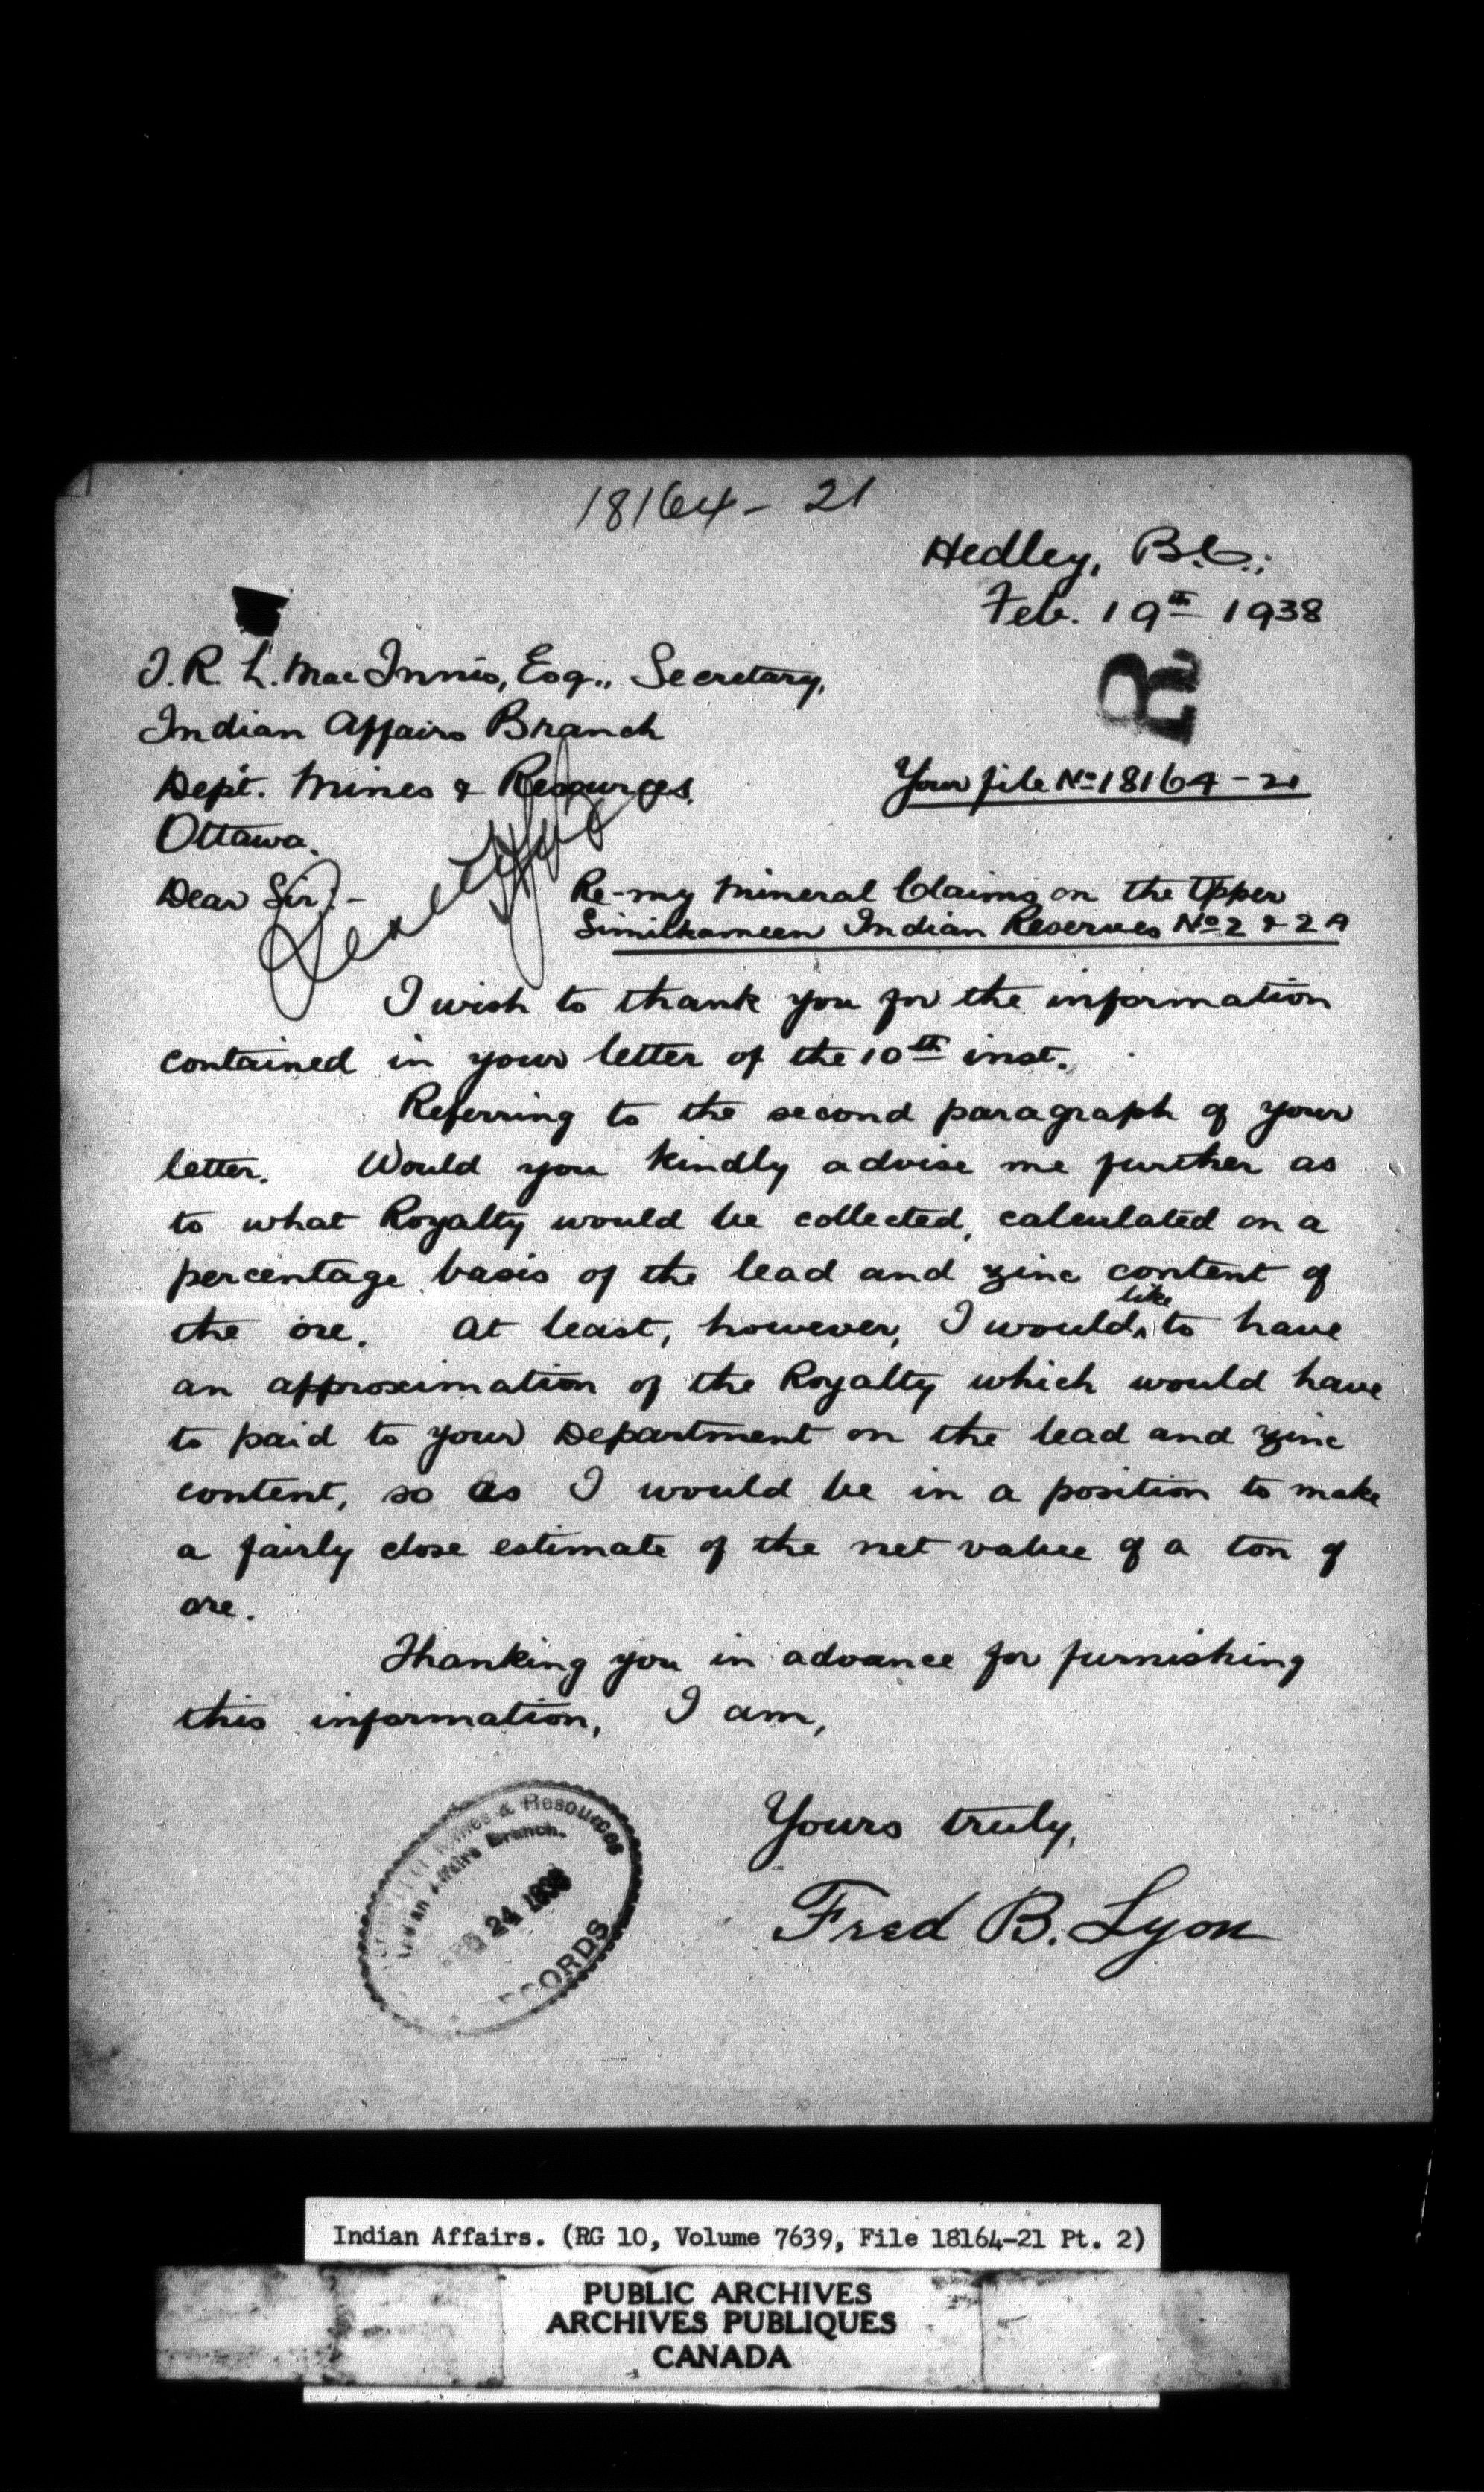 18164-21
Hedley, B.C.;
Feb. 19th 1938
R
T. R. L. MacInnis, Esq., Secretary,
Indian Affairs Branch
Dept. Mines & Resources,
Your file No 18164-21
Ottawa.
Dear Sir:-
Re-my Mineral Claims on the Upper
Similkameen Indian Reserves No 2 & 2A
I wish to thank you for the information
contained in your letter of the 10th inst.
Referring to the second paragraph of your
letter. Would you kindly advise me further as
to what Royalty would be collected, calculated on a
percentage basis of the lead and zinc content of
the ore. At least, however, I would like to have
an approximation of the Royalty which would have
to paid to your Department on the lead and zinc
content, so as I would be in a position to make
a fairly close estimate of the net value of a ton of
ore.
Thanking you in advance for furnishing
this information, I am,
Yours truly,
Fred B. Lyon
Mines & Resources
Indian Affairs Branch.
24 1938
RECORDS
Indian Affairs. (RG 10, Volume 7639, File 18164-21 Pt. 2)
PUBLIC ARCHIVES
ARCHIVES PUBLIQUES
CANADA